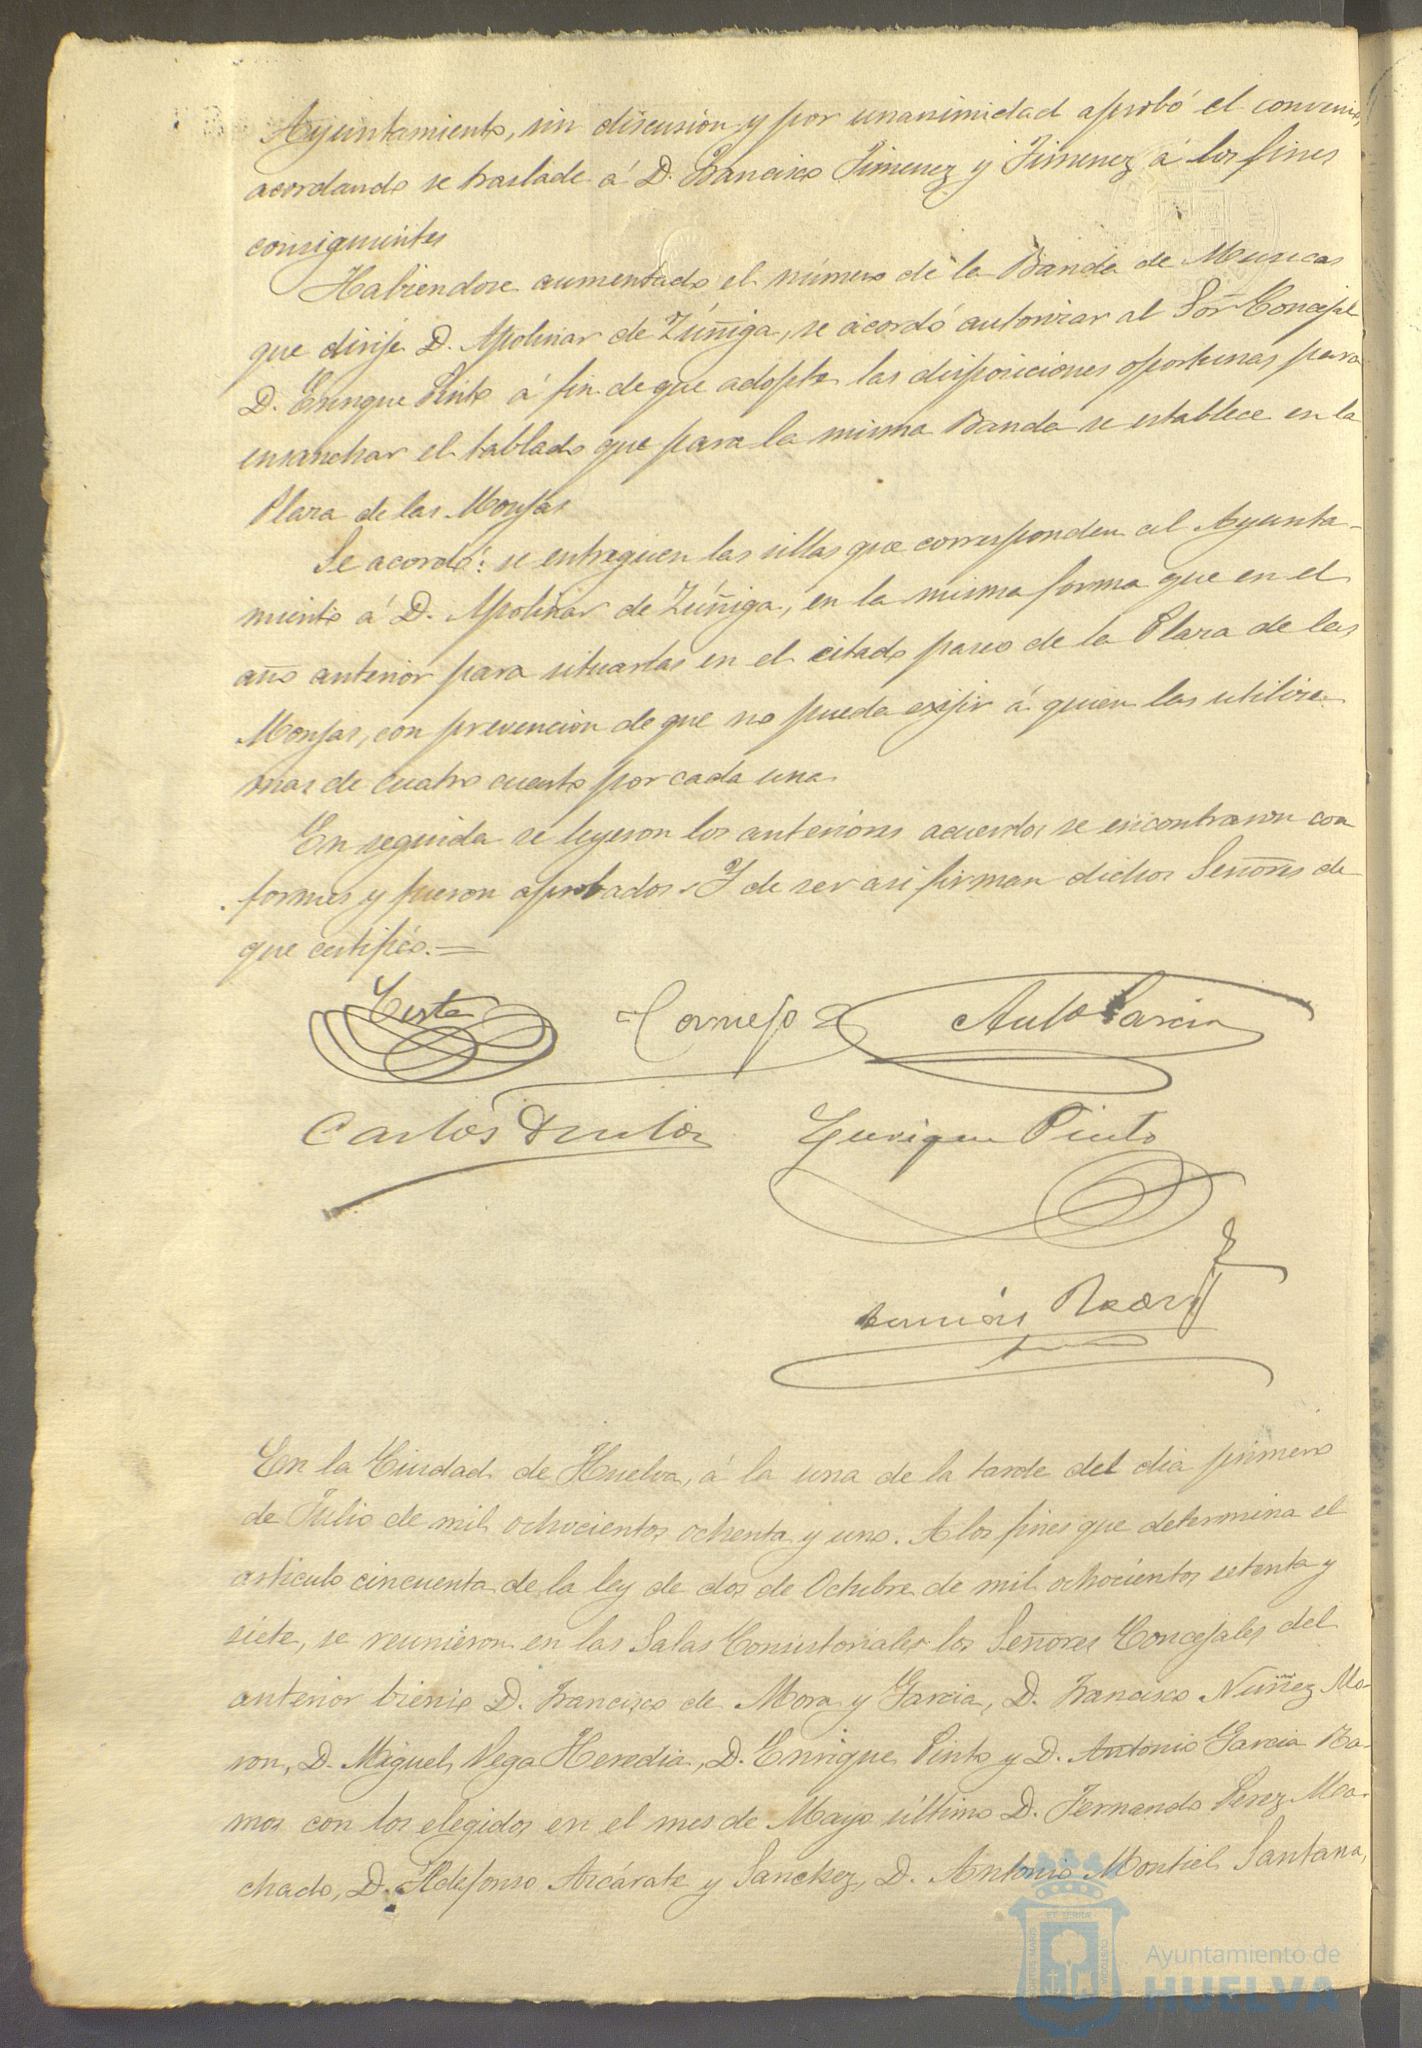 Ayuntamiento, sin discusion y por unanimidad aprobó el convenio,
acordando se traslade á D. Francisco Jimenez y Jimenez á los fines
consiguientes
Habiendose aumentado el número de la Banda de Musicas
que dirije D. Apolinar de Zúñiga, se acordó autorizar al Sor Concejal
D. Enrique Pinto á fin de que adopte las disposiciones oportunas para
ensanchar el tablado que para la misma Banda se establece en la
Plaza de las Monjas
Se acordó: se entreguen las sillas que corresponden al Ayunta-
miento á D. Apolinar de Zúñiga, en la misma forma que en el
año anterior para situarlas en el citado paseo de la Plaza de las
Monjas, con prevencion de que no pueda exijir á quien las utilize
mas de cuatro cuartos por cada una
En seguida se leyeron los anteriores acuerdos se encontraron con
formes y fueron aprobados. Y de ser asi firman dichos Señores de
que certifico.=
Cornejo
Anto Garcia
Carlos
Enrique Pinto
En la Ciudad de Huelva, á la una de la tarde del dia primero
de Julio de mil ochocientos ochenta y uno. A los fines que determina el
articulo cincuenta de la ley de dos de Octubre de mil ochocientos setenta y
siete, se reunieron en las Salas Consistoriales los Señores Concejales del
anterior bienio D. Francisco de Mora y Garcia, D. Francisco Nuñez Mo-
ron, D. Miguel Vega Heredia, D. Enrique Pinto y D. Antonio Garcia Ra-
mos con los elegidos en el mes de Mayo último D. Fernando Perez Ma-
chado, D. Ildefonso Azcárate y Sanchez, D. Antonio Montiel Santana,
Ayuntamiento de
HUELVA